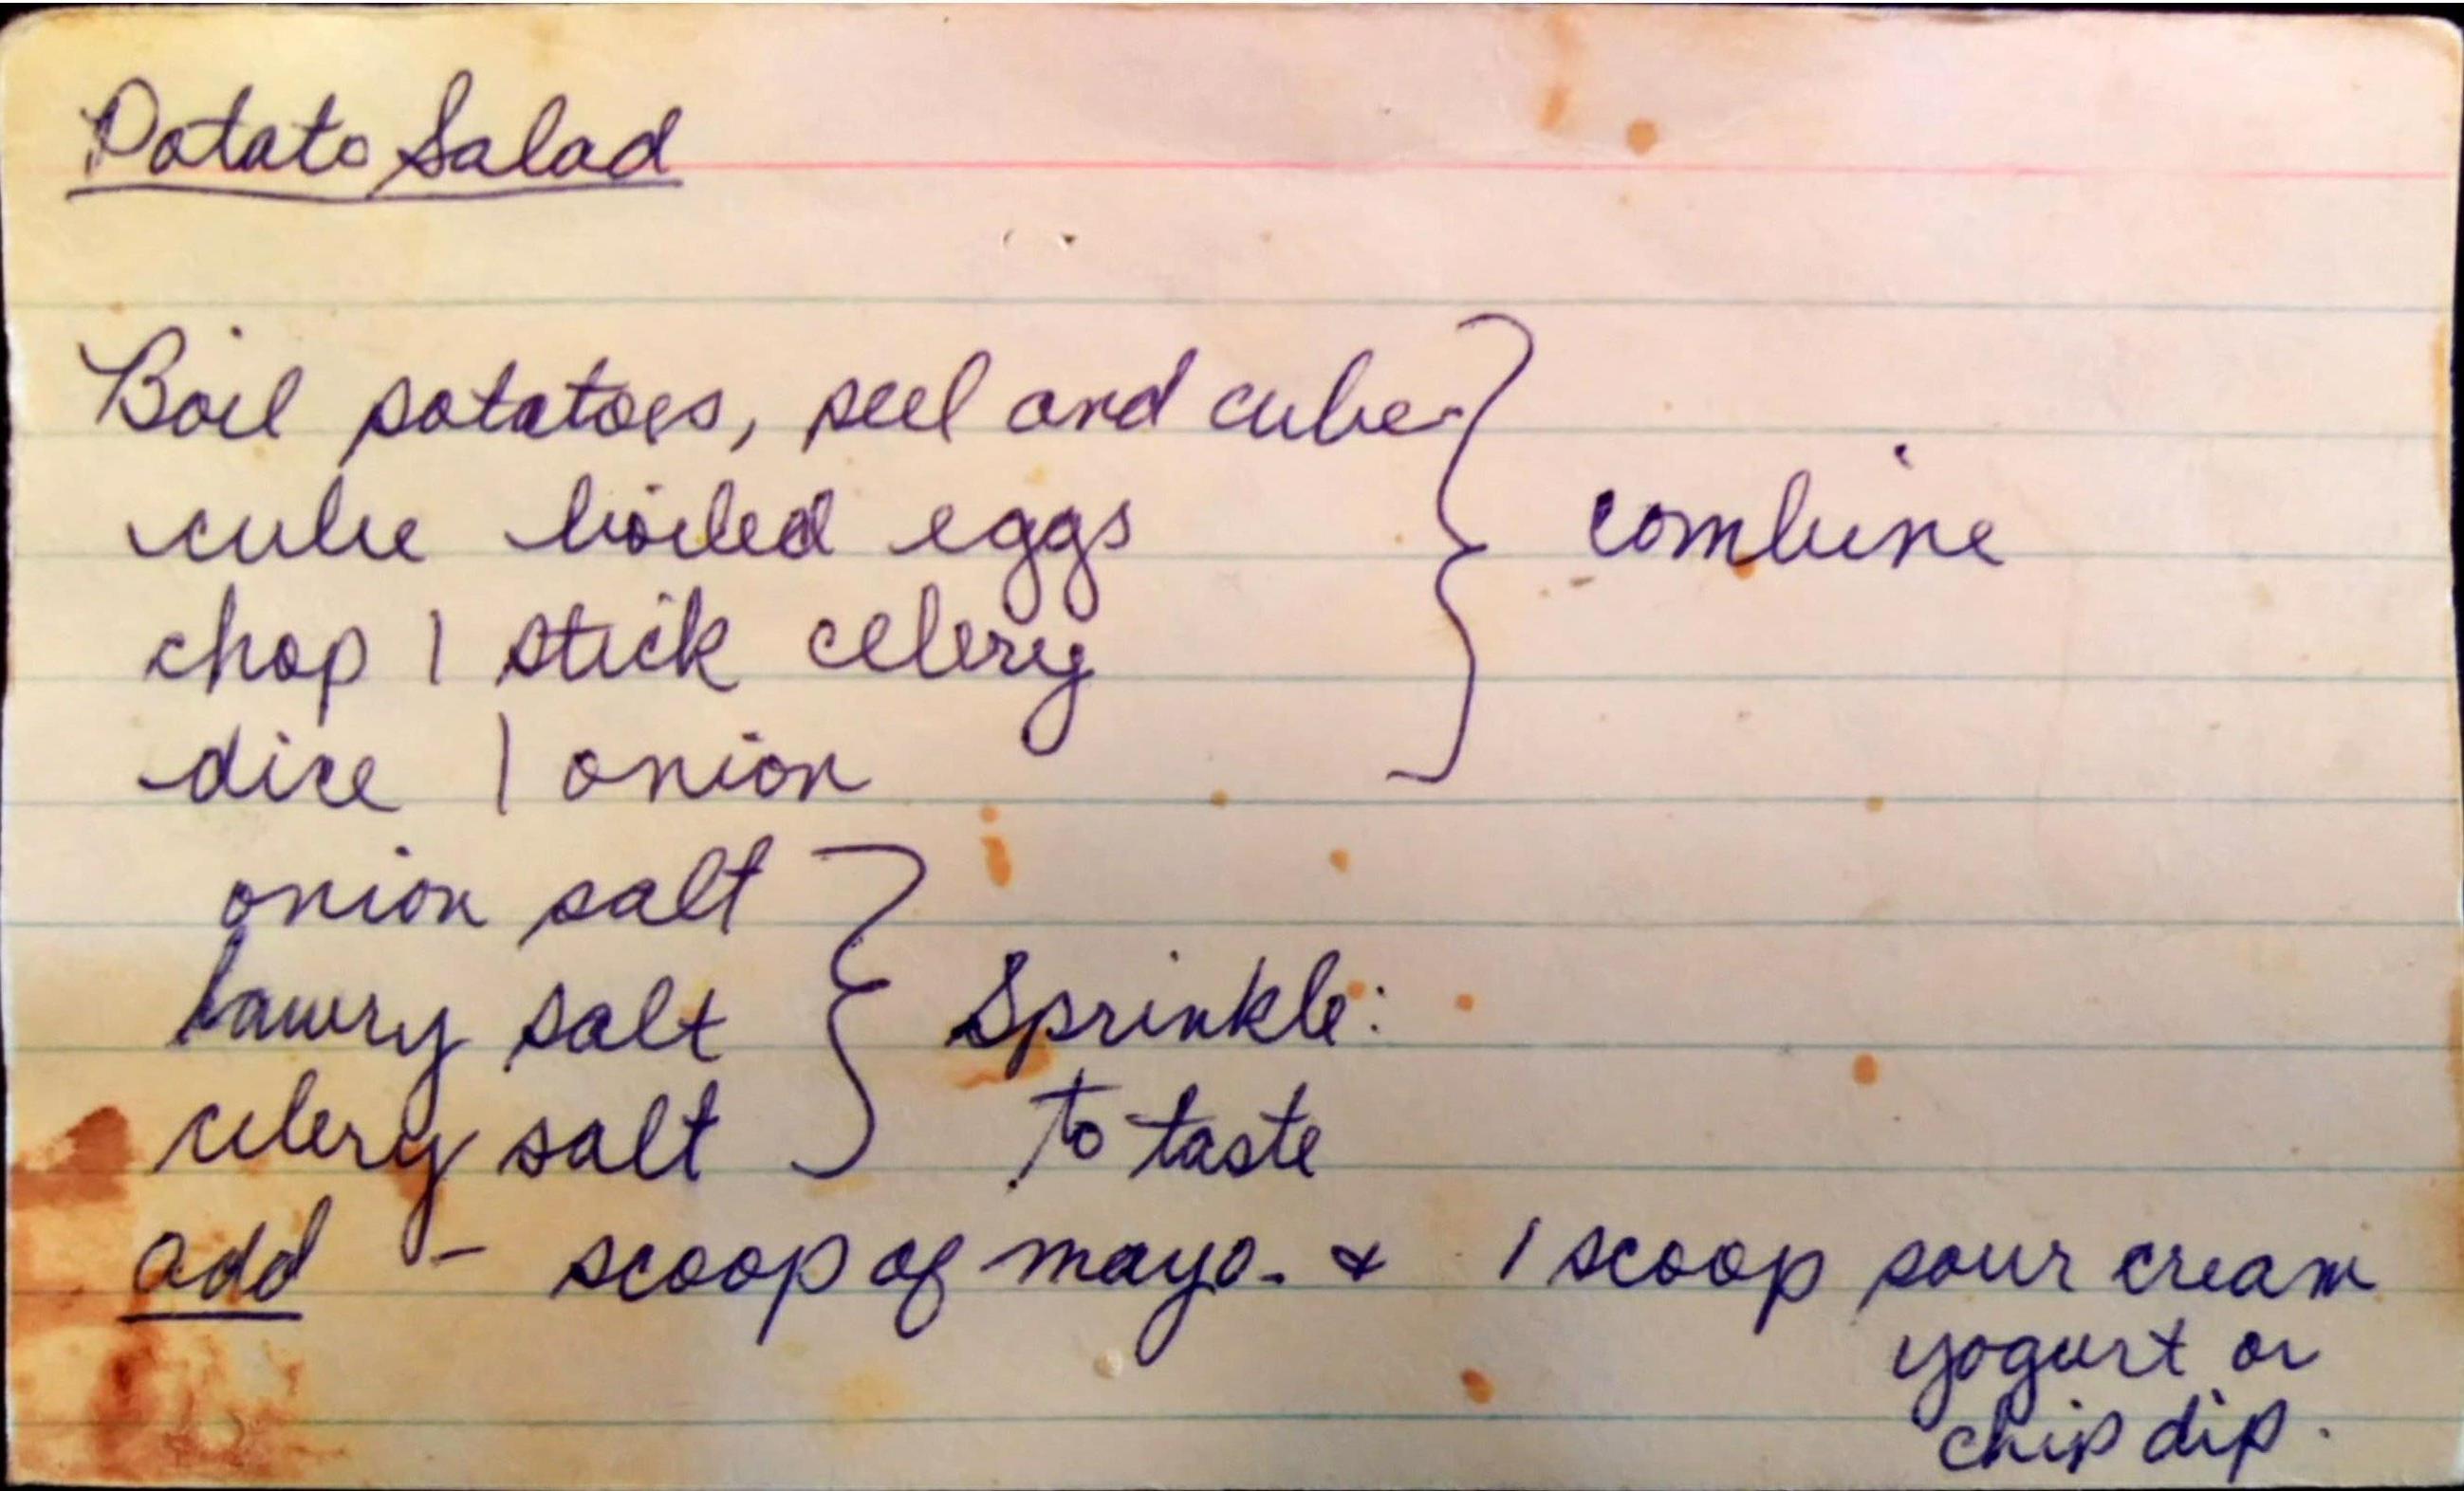 Potato Salad
Boil potatoes, peel and cube
cube boiled eggs
combine
chop 1 stick celery
dice 1 onion
onion salt
Lawry salt
Sprinkle:
celery salt
to taste
add - scoop of mayo. & 1 scoop sour cream
yogurt or
chip dip.